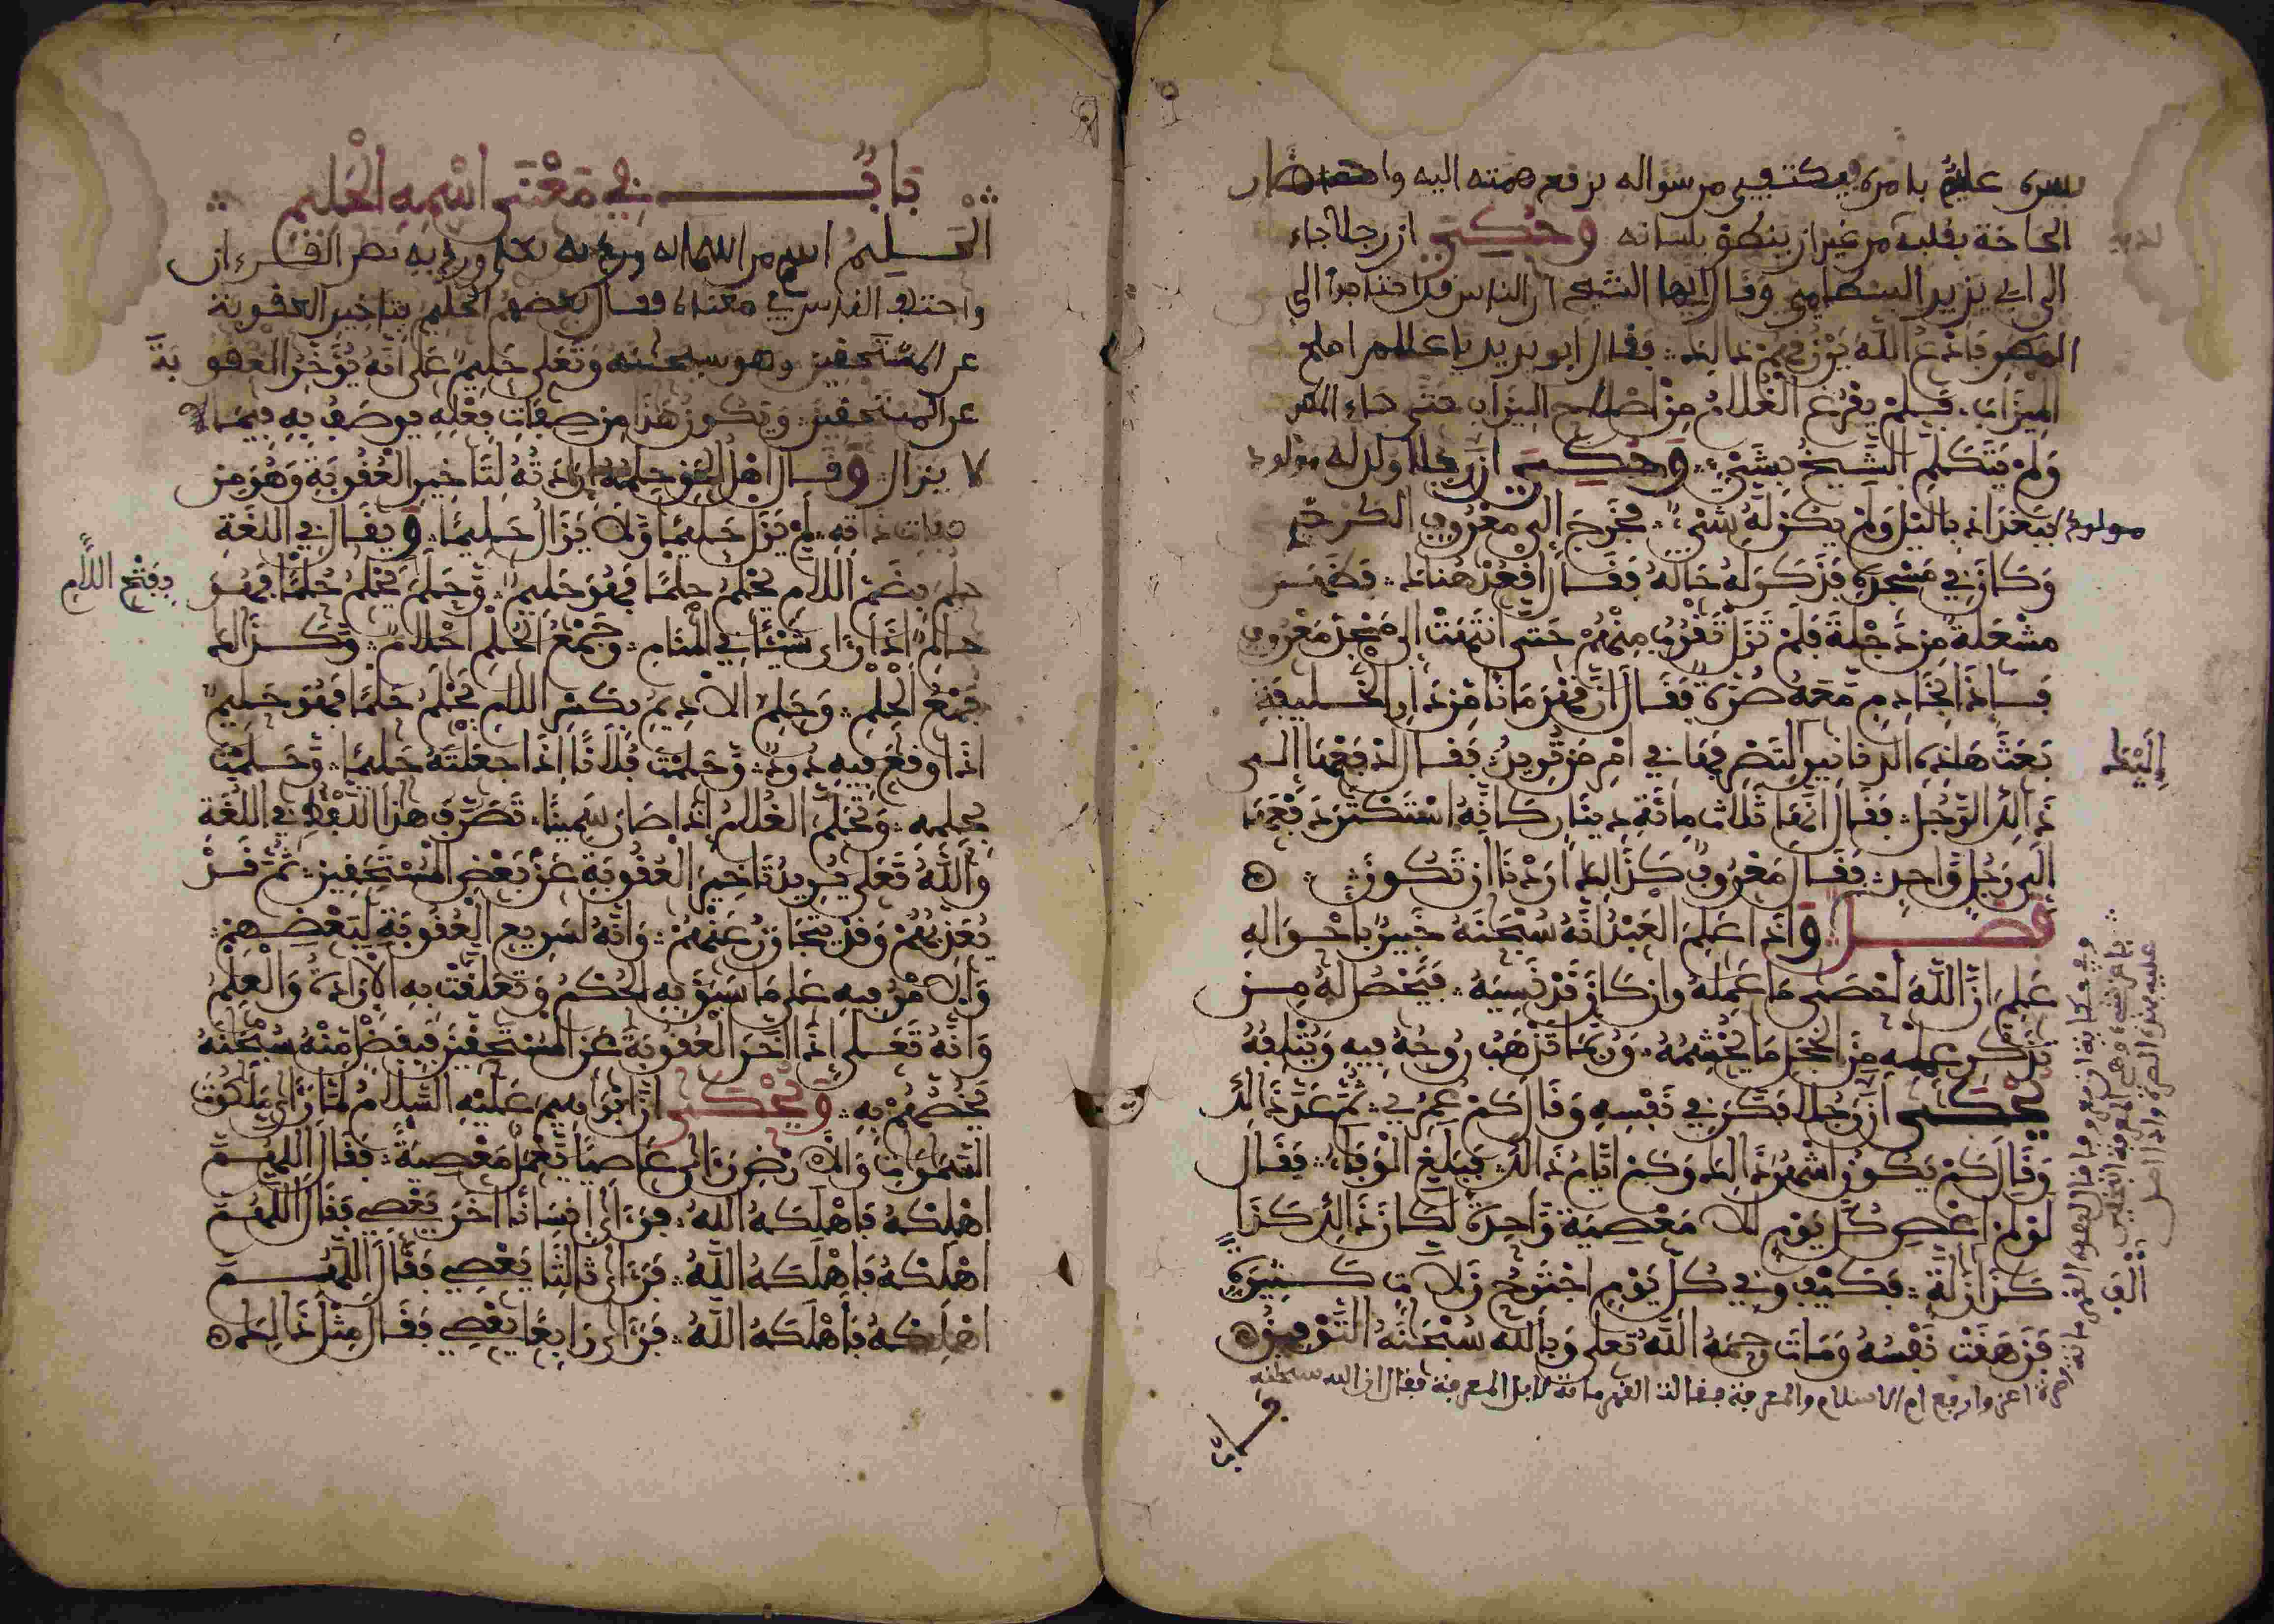 بسره عليم بامره يكتفي من سؤاله برفع همته اليه واحضار
الحاجة بقلبه من غير ان ينطق بلسانه وحكي ان رجلا جاء
الى ابي يزيد البسطامي وقال ايها الشيخ ان الناس قد احتاجوا الى
المطر فادع الله يرزقهم ذالك فقال ابو يزيد يا غلام اصلح
الميزاب فلم يفرغ الغلام من اصلاح الميزاب حتى جاء المطر
ولم يتكلم الشيخ بشيء وحكي ان رجلا ولد له مولود
مولود ببغداد بالليل ولم يكن له شيء فخرج الى معروف الكرخي
وكان في مسجده فذكر له حاله فقال اقعد هناك فظهرت
مشعلة من دجلة فلم تزل تقرب منهم حتى انتهت الى مسجد معروف
فاذا بخادم معه صرة فقال ان قهرمانا من دار الخليفة
بعث هاذه الدنانير لتصرفها في امر من تريد فقال ادفعها الى
اليك
ذالك الرجل فقال انها ثلاث مائة دينار كانه استكثر دفعها
الى رجل واحد فقال معروف كذالك اردنا ان تكون
فصل واذا علم العبد انه سبحنه خبير باحواله
علم ان الله احصى ما عمله وان كان قد نسيه فيحصل له من
تذكر عمله من الخجل ما يحشمه وربما تذهب روحه فيه ويتلفه
يحكى ان رجلا فكر في نفسه وقال كم عمري ثم عد ذالك
وقال كم يكون اشهر ذالك وكم ايام ذالك فبلغ الوفا فقال
لو لم اعص كل يوم الا معصية واحدة لكان ذالك كذا
كذا زلة فكيف وفي كل يوم اجترح زلات كثيرة
ألف
فزهقت نفسه ومات رحمه الله تعلى وبالله سبحنه التوفيق
اعز وارفع ام الاسلام والمعرفة فقالت الفهرمانة لا بل المعرفة فقال ان الله سبحنه
باب في معنى اسمه الحليم
الحليم اسم من اسمائه ورد به نص القرءان
واختلف الناس في معناه فقال بعضهم الحليم بتاخير العقوبة
عن المستحقين وهو سبحنه وتعلى حليم على انه يؤخر العقوبة
عن المستحقين ويكون هذا من صفات فعله يوصف به فيما
لا يزال وقال اهل الحق حلمه ارادته لتاخير العقوبة وهو من
صفات ذاته لم يزل حليما ولا يزال حليما ويقال في اللغة
حلم بضم اللام يحلم حلما فهو حليم وحلم يحلم حلما فهو
بفتح اللام
حالم اذا راى شيئا في المنام وجمع الحلم احلام وكذالك
جمع الحلم وحلم الاديم بكسر اللام يحلم حلما فهو حليم
اذا وقع فيه دود وحلمت فلانا اذا جعلته حليما وحلمت
بحلمه وتحلم الغلام اذا صار سمينا تصرف هذا اللفظ في اللغة
والله تعلى يريد تاخير العقوبة عن بعض المستحقين ثم قد
يعذبهم وقد يتجاوز عنهم وانه لسريع العقوبة لبعضهم
والامر فيه على ما سبق به الحكم وتعلقت به الارادة والعلم
وانه تعلى اذا اخر العقوبة عن المستحقين فبفضل منه سبحنه
يخصهم به ويحكى ان ابراهيم عليه السلام لما راى ملكوت
السموات والارض راى عاصيا يعمل معصية فقال اللهم
اهلكه فاهلكه الله فراى انسانا اخر يعصي فقال اللهم
اهلكه فاهلكه الله فراى ثالثا يعصي فقال اللهم
اهلكه فاهلكه الله فراى رابعا يعصي فقال مثل ذالك